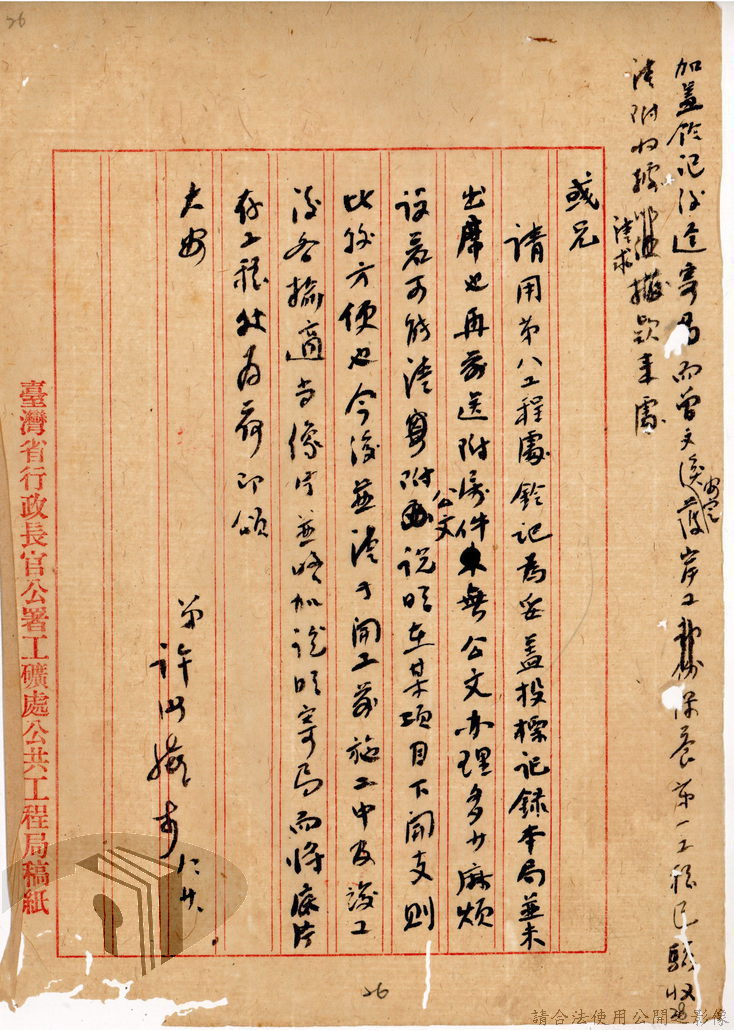 加蓋鈐記後逕寄局而曾文溪護岸工 保養第一工程已驗收
安定
請附收據 據款來處
請求
或兄
請用第八工程處鈐記為妥蓋投標記錄本局並未
出席也再前送附屬件無公文亦理多少麻煩
公文
設若可能請寫附函說明在某項目下開支則
比較方便也今後並請于開工前施工中及竣工
後各攝適當像片並略加說明寄局而將底片
存工程處為荷即頌
大安
弟許
26
26
臺灣省行政長官公署工礦處公共工程局稿紙
請合法使用公開之影像